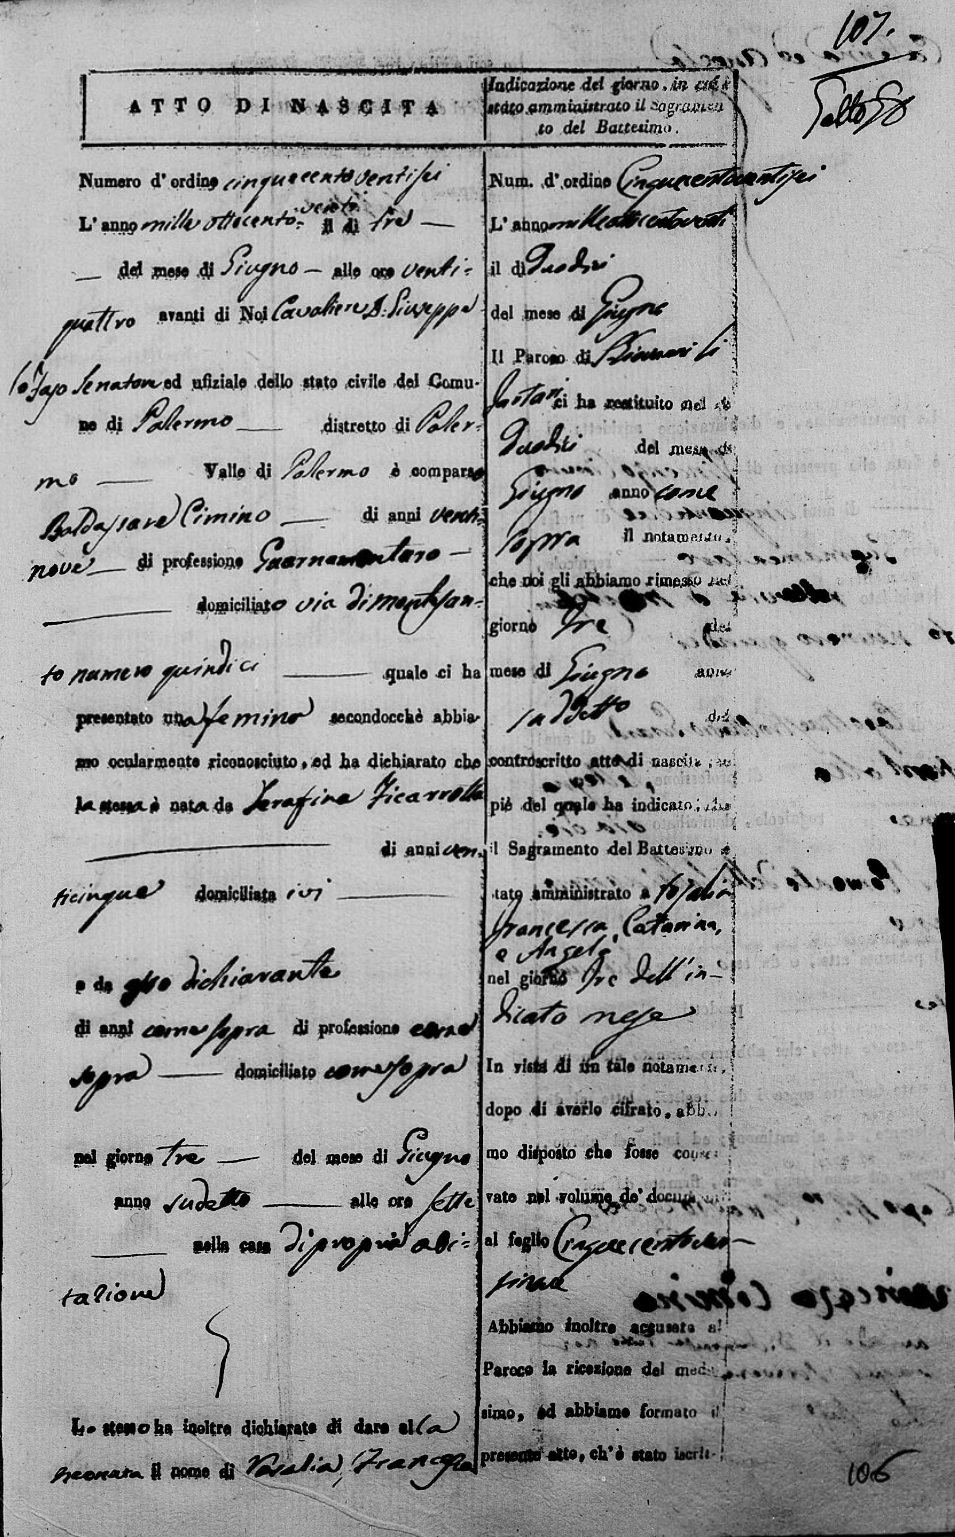 107.
ATTO DI NASCITA
Numero d'ordine cinquecento ventisei
L'anno mille ottocento venti il di tre
del mese di Giugno alle ore venti=
quattro avanti di Noi Cavaliere D. Giuseppe
Senatore ed ufiziale dello stato civile del Comu-
ne di Palermo distretto di Paler=
mo Valle di Palermo è comparso
Baldassare Cimino di anni venti=
nove di professione Guarnamentaro
domiciliato via di Montesan=
to numero quindici quale ci ha
presentato una femina secondocchè abbia-
mo ocularmente riconosciuto, ed ha dichiarato che
la stessa è nata da Serafina Ficarrotta
di anni ven=
ticinque domiciliata ivi
e da esso dichiarante
di anni come sopra di professione come
sopra domiciliato come sopra
nel giorno tre del mese di Giugno
anno sudetto alle ore sette
nella casa di propria abi=
tazione
Lo stesso ha inoltre dichiarato di dare alla
neonata il nome di Rosalia, Francesca
Indicazione del giorno, in cui è
stato amministrato il Sagramen
to del Battesimo.
Num. d'ordine Cinquecentoventisei
L'anno milleottocentoventi
il di Duodici
del mese di Giugno
Il Paroco di
ci ha restituito nel di
Duodici del mese di
Giugno anno come
sopra il notamento,
che noi gli abbiamo rimesso nel
giorno Tre del
mese di Giugno anno
suddetto del
controscritto atto di nascita, a
piè del quale ha indicato, che
il Sagramento del Battesimo è
stato amministrato a Rosalia
Francesca, Catarina,
e Angela
nel giorno tre dell'in=
dicato mese
In vista di un tale notamento,
dopo di averlo cifrato, abbia
mo disposto che fosse conser
vato nel volume de' documenti
al foglio Cinquecentoven=
Abbiamo inoltre accusato al
Paroco la ricezione del mede
simo, ed abbiamo formato il
presente atto, ch'è stato iscrit-
106